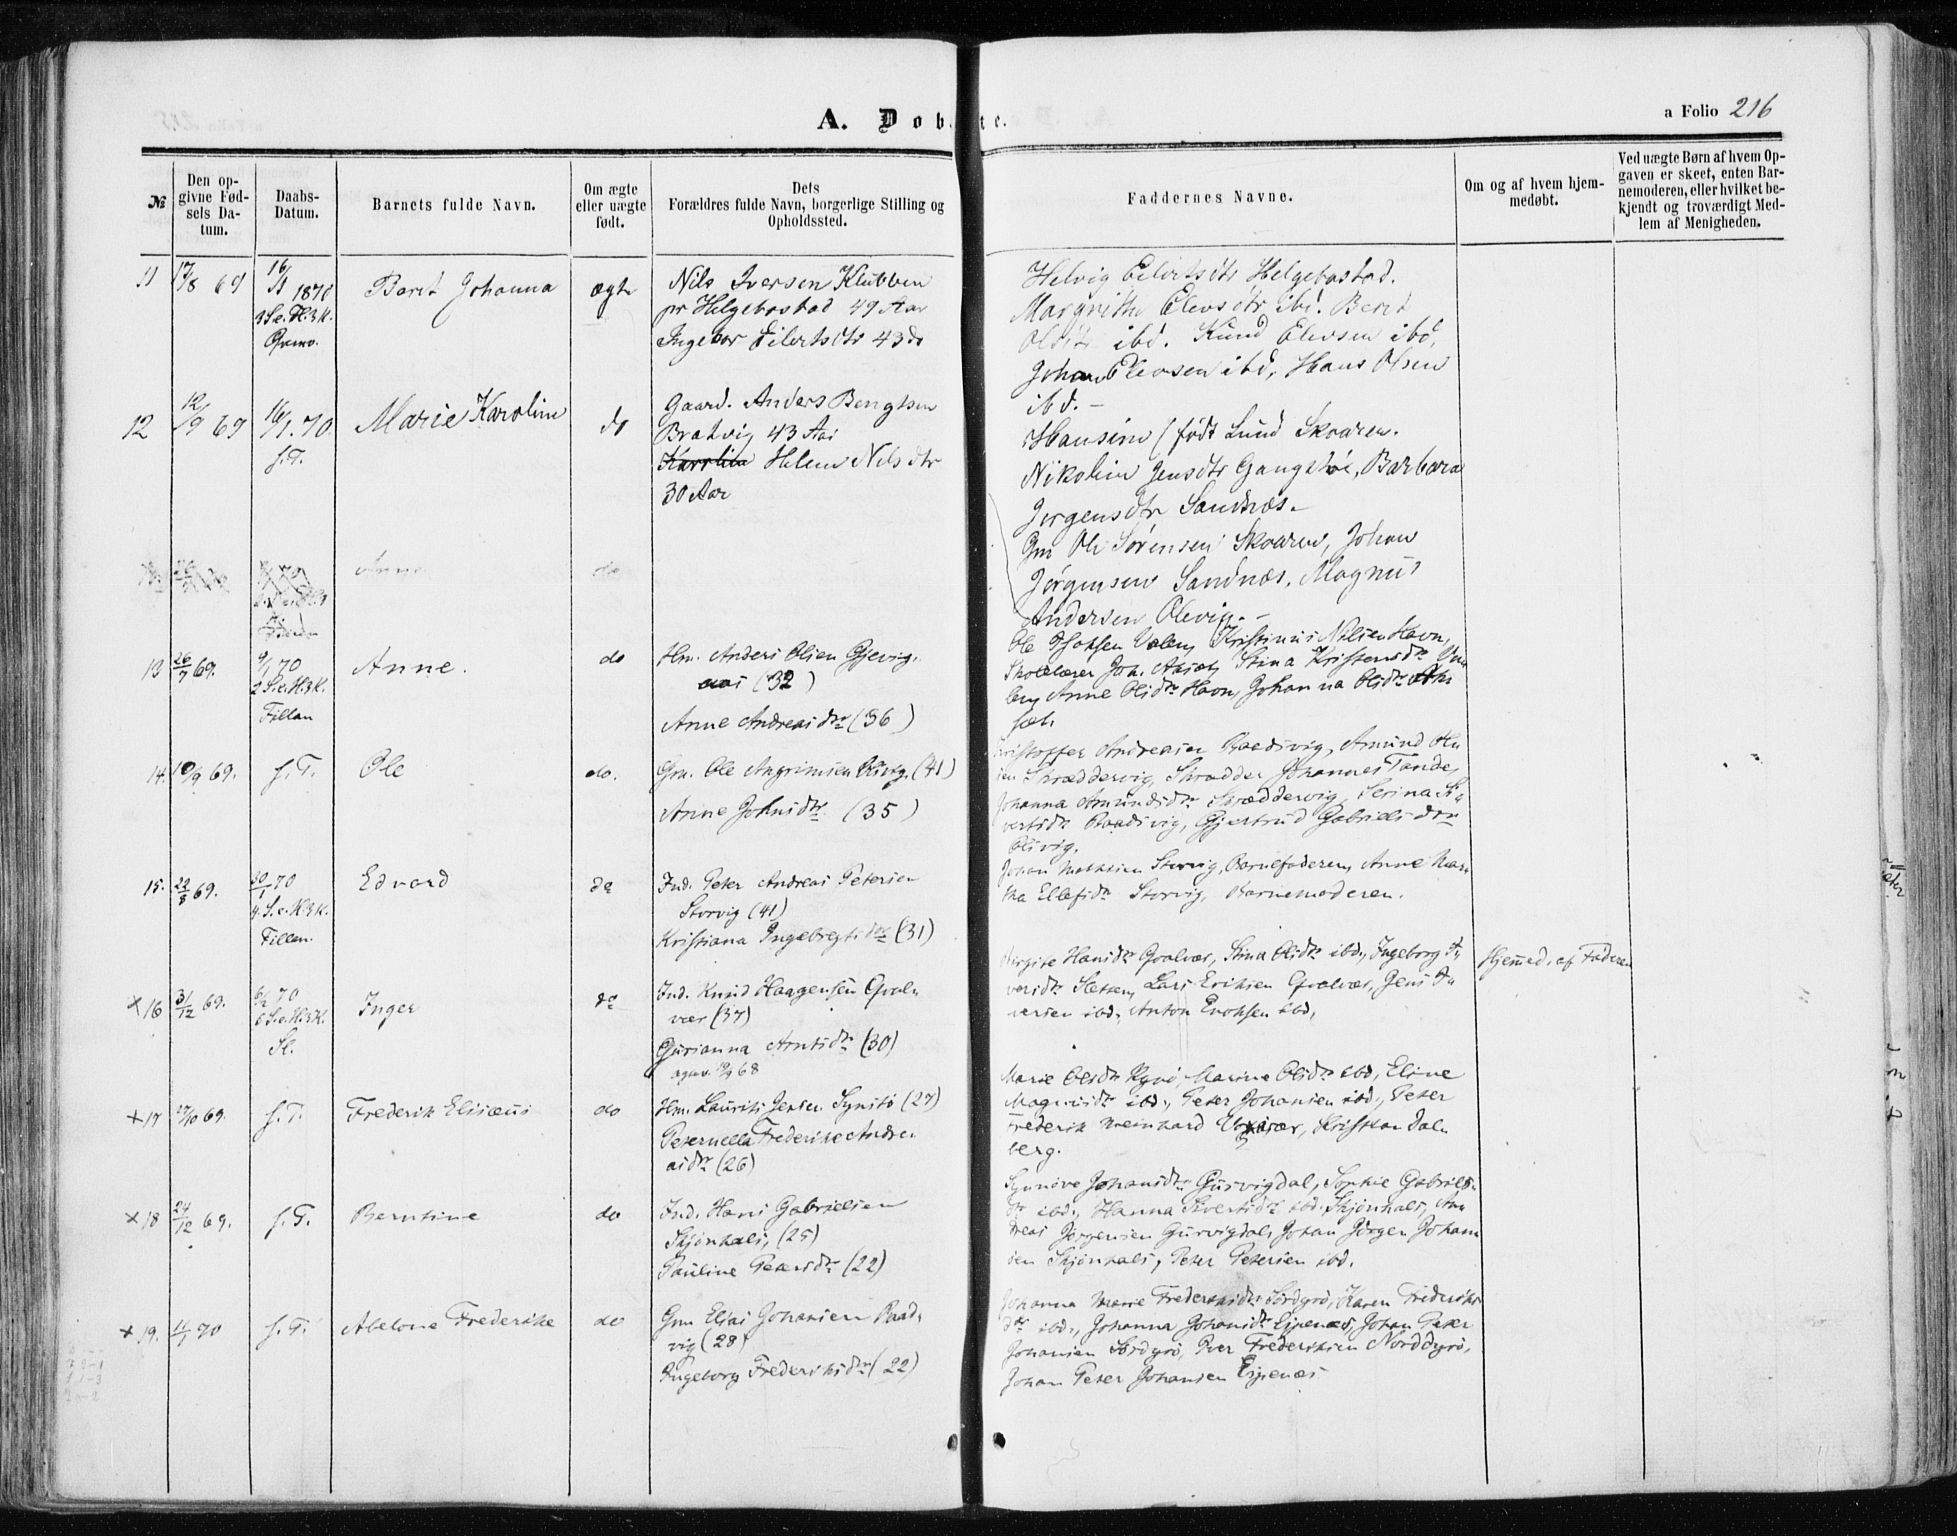 A. Døbte.
a Folio 216
№
Den op-
givne Fød-
sels Da-
tum.
Daabs-
Datum.
Barnets fulde Navn.
Om ægte
eller uægte
født.
Dets
Forældres fulde Navn, borgerlige Stilling og
Opholdssted.
Faddernes Navne.
Om og af hvem hjem-
medøbt.
Ved uægte Børn af hvem Op-
gaven er skeet, enten Bar-
nemoderen, eller hvilket be-
kjendt og troværdigt Med-
lem af Menigheden.
11
17/8 69
16/1 1870
3 S. e. H. 3 K.
Berit Johanna
ægte
Nils Iversen Klubben
pr Helgebostad 49 Aar
Ingebor Eilertsdtr 43 do
Helvig Eilertsdtr Helgebostad.
Margrethe Elevsdtr ibd. Berit
Olsdtr ibd. Knud Elevsen ibd,
Johan Elevsen ibd, Hans Olsen
ibd. -
12
12/9 69
16/1. 70
s. T.
Marie Karoline
do
Gaard. Anders Bengtsen
Bratvig 43 Aar
Karolin Helene Nilsdtr
30 Aar
Hansine (født Lund Skaaren.
Nikoline Jensdtr Gangstøe, Barbara
Jørgensdtr Sandnæs.
Gm Ole Sørensen Skaaren, Johan
Jørgensen Sandnæs. Magnus
Andersen Olevig. -
Anne
do
13
26/7 69.
9/1 70
2 S. e. H. 3 K.
Fillan
Anne.
do
Hm. Anders Olsen Gjevig,
(32)
Anne Andreasdtr (36)
Ole Valen, Kristinus Nilsen Havn,
Skolelærer Joh. Stina Kristensdtr
Anne Olsdtr Havn, Johanna Olsdtr
sæt.
14.
10/9 69.
s. T.
Ole
do.
Gm. Ole Angrimsen Olsvig. (41)
Anne Johnsdtr (35)
Kristoffer Andreasen Baadsvig, Amund
sen Skræddervig, Skrædder Johannes Tande,
Johanna Amundsdtr Skræddervig, Serina Si-
vertsdtr Baadsvig, Gjertrud Gabrielsdtr
Olsvig.
15.
22/8 69.
30/1 70
4 S. e. H. 3 K.
Fillan.
Edvard
do
Ind. Peter Andreas Petersen
Storvig (41)
Kristiana Ingebregtsdtr (31)
Johan Mathisen Storvig, Barnefaderen, Anne Mar-
tha Ellefsdtr Storvig, Barnemoderen.
x 16
31/12 69.
6/2 70
5 S. e. H. 3 K.
Sl.
Inger
do
Ind. Knud Haagensen Qval-
vær (37)
Gurianna Arntsdtr (30)
Birgite Hansdtr Qvalvær, Stina Olsdtr ibd., Ingeborg I-
versdtr Hessen, Lars Eriksen Qvalvær, Jens I-
versen ibd., Anton Enoksen ibd.
Hjemmed. af Faderen
x 17
27/10 69.
s. T.
Frederik Elisæus
do
Hm. Laurits Jensen Synstø (27)
Peternella Frederike Andre-
asdtr (26)
Marie Olsdtr Kyrø, Marine Olsdtr ibd, Eline
Magnusdtr ibd., Peter Johansen ibd., Peter
Frederik Meinhard Kristian Dal-
berg.
x 18
24/12 69.
s. T.
Berntine
do
Ind. Hans Gabrielsen
Skjønhals, (25)
Pauline Petersdtr (22)
Synnøve Johansdtr Gurvigdal, Sophie Gabriels-
dtr ibd., Hanna Sivertsdtr ibd. Skjønhals, An-
dreas Jørgensen Gurvigdal, Johan Jørgen Johan-
sen Skjønhals, Peter Petersen ibd.
x 19.
11/1 70
s. T.
Abelone Frederikke
do
Gm. Elias Johansen Baad-
vig (28)
Ingeborg Frederiksdtr (22)
Johanna Marie Frederiksdtr Sørdyrø, Karen Frederiks-
dtr ibd., Johanna Johansdtr Espenæs, Johan Peter
Johansen Sørdyrø, Peer Frederiksen Norddyrø,
Johan Peter Johansen Espenæs